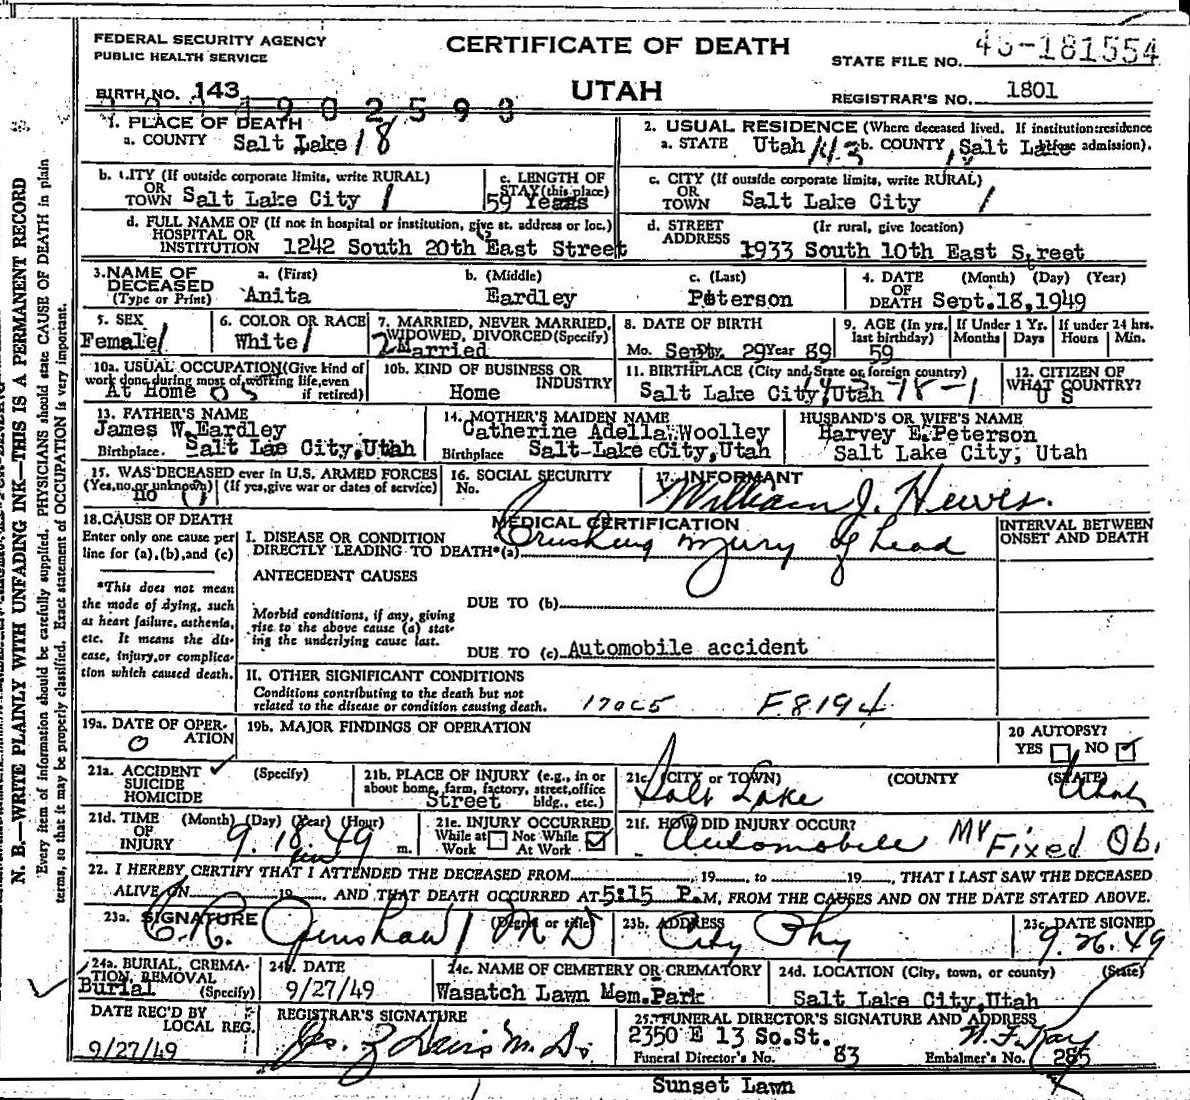 FEDERAL SECURITY AGENCY
PUBLIC HEALTH SERVICE
CERTIFICATE OF DEATH
STATE FILE NO. 181554
BIRTH NO. 143
UTAH
REGISTRAR'S NO. 1801
1902593
1. PLACE OF DEATH
a. COUNTY Salt Lake 18
2. USUAL RESIDENCE (Where deceased lived. If institution: residence
a. STATE Utah b. COUNTY Salt Lake admission).
b. CITY (If outside corporate limits, write RURAL)
OR
TOWN Salt Lake City 1
c. LENGTH OF
STAY (this place)
59 Years
c. CITY (If outside corporate limits, write RURAL)
OR
TOWN Salt Lake City 1
d. FULL NAME OF (If not in hospital or institution, give st. address or loc.)
HOSPITAL OR
INSTITUTION 1242 South 20th East Street
d. STREET (If rural, give location)
ADDRESS 1933 South 10th East S,reet
3. NAME OF DECEASED
(Type or Print)
a. (First)
Anita
b. (Middle)
Eardley
c. (Last)
Peterson
4. DATE (Month) (Day) (Year)
OF
DEATH Sept.18,1949
5. SEX
Female 1
6. COLOR OR RACE
White 1
7. MARRIED, NEVER MARRIED,
WIDOWED, DIVORCED (Specify)
2 Married
8. DATE OF BIRTH
Mo. Sept Dy. 29 Year 89
9. AGE (In yrs. last birthday)
59
If Under 1 Yr.
Months Days
If under 24 hrs.
Hours Min.
10a. USUAL OCCUPATION (Give kind of
work done during most of working life, even
if retired)
At Home
10b. KIND OF BUSINESS OR
INDUSTRY
Home
11. BIRTHPLACE (City and State or foreign country)
Salt Lake City, Utah
12. CITIZEN OF
WHAT COUNTRY?
U S
13. FATHER'S NAME
James W. Eardley
Birthplace. Salt Lae City, Utah
14. MOTHER'S MAIDEN NAME
Catherine Adella Woolley
Birthplace Salt Lake City, Utah
HUSBAND'S OR WIFE'S NAME
Harvey E. Peterson
Salt Lake City, Utah
15. WAS DECEASED ever in U.S. ARMED FORCES
(Yes, no, or unknown) (If yes, give war or dates of service)
no
16. SOCIAL SECURITY
No.
17. INFORMANT
William J. Hewes.
18. CAUSE OF DEATH
Enter only one cause per
line for (a), (b), and (c)
*This does not mean
the mode of dying, such
as heart failure, asthenia,
etc. It means the dis-
ease, injury, or complica-
tion which caused death.
MEDICAL CERTIFICATION
I. DISEASE OR CONDITION
DIRECTLY LEADING TO DEATH*(a) Crushing injury of head
INTERVAL BETWEEN
ONSET AND DEATH
ANTECEDENT CAUSES
DUE TO (b)
Morbid conditions, if any, giving
rise to the above cause (a) stat-
ing the underlying cause last.
DUE TO (c) Automobile accident
II. OTHER SIGNIFICANT CONDITIONS
Conditions contributing to the death but not
related to the disease or condition causing death.
F8194
19a. DATE OF OPER-
ATION
0
19b. MAJOR FINDINGS OF OPERATION
20 AUTOPSY?
YES NO
21a. ACCIDENT (Specify)
SUICIDE
HOMICIDE
21b. PLACE OF INJURY (e.g., in or
about home, farm, factory, street, office
bldg., etc.)
Street
21c. (CITY or TOWN) (COUNTY (STATE)
Salt Lake Utah
21d. TIME (Month) (Day) (Year) (Hour)
OF
INJURY 9.18.49 m.
21e. INJURY OCCURRED
While at Work Not While At Work
21f. HOW DID INJURY OCCUR?
Automobile MV Fixed Ob.
22. I HEREBY CERTIFY THAT I ATTENDED THE DECEASED FROM 19 , to 19 , THAT I LAST SAW THE DECEASED
ALIVE ON 19 , AND THAT DEATH OCCURRED AT 5:15 P.M, FROM THE CAUSES AND ON THE DATE STATED ABOVE.
23a. SIGNATURE (Degree or title)
M D
23b. ADDRESS
City Phy
23c. DATE SIGNED
9.26.49
24a. BURIAL, CREMA-
TION, REMOVAL
(Specify)
Burial
24b. DATE
9/27/49
24c. NAME OF CEMETERY OR CREMATORY
Wasatch Lawn Mem. Park
24d. LOCATION (City, town, or county) (State)
Salt Lake City, Utah
DATE REC'D BY
LOCAL REG.
9/27/49
REGISTRAR'S SIGNATURE
25. FUNERAL DIRECTOR'S SIGNATURE AND ADDRESS
2350 E 13 So.St.
Funeral Director's No. 83 Embalmer's No. 285
Sunset Lawn
N. B.—WRITE PLAINLY WITH UNFADING INK—THIS IS A PERMANENT RECORD
Every item of information should be carefully supplied. PHYSICIANS should state CAUSE OF DEATH in plain
terms, so that it may be properly classified. Exact statement of OCCUPATION is very important.